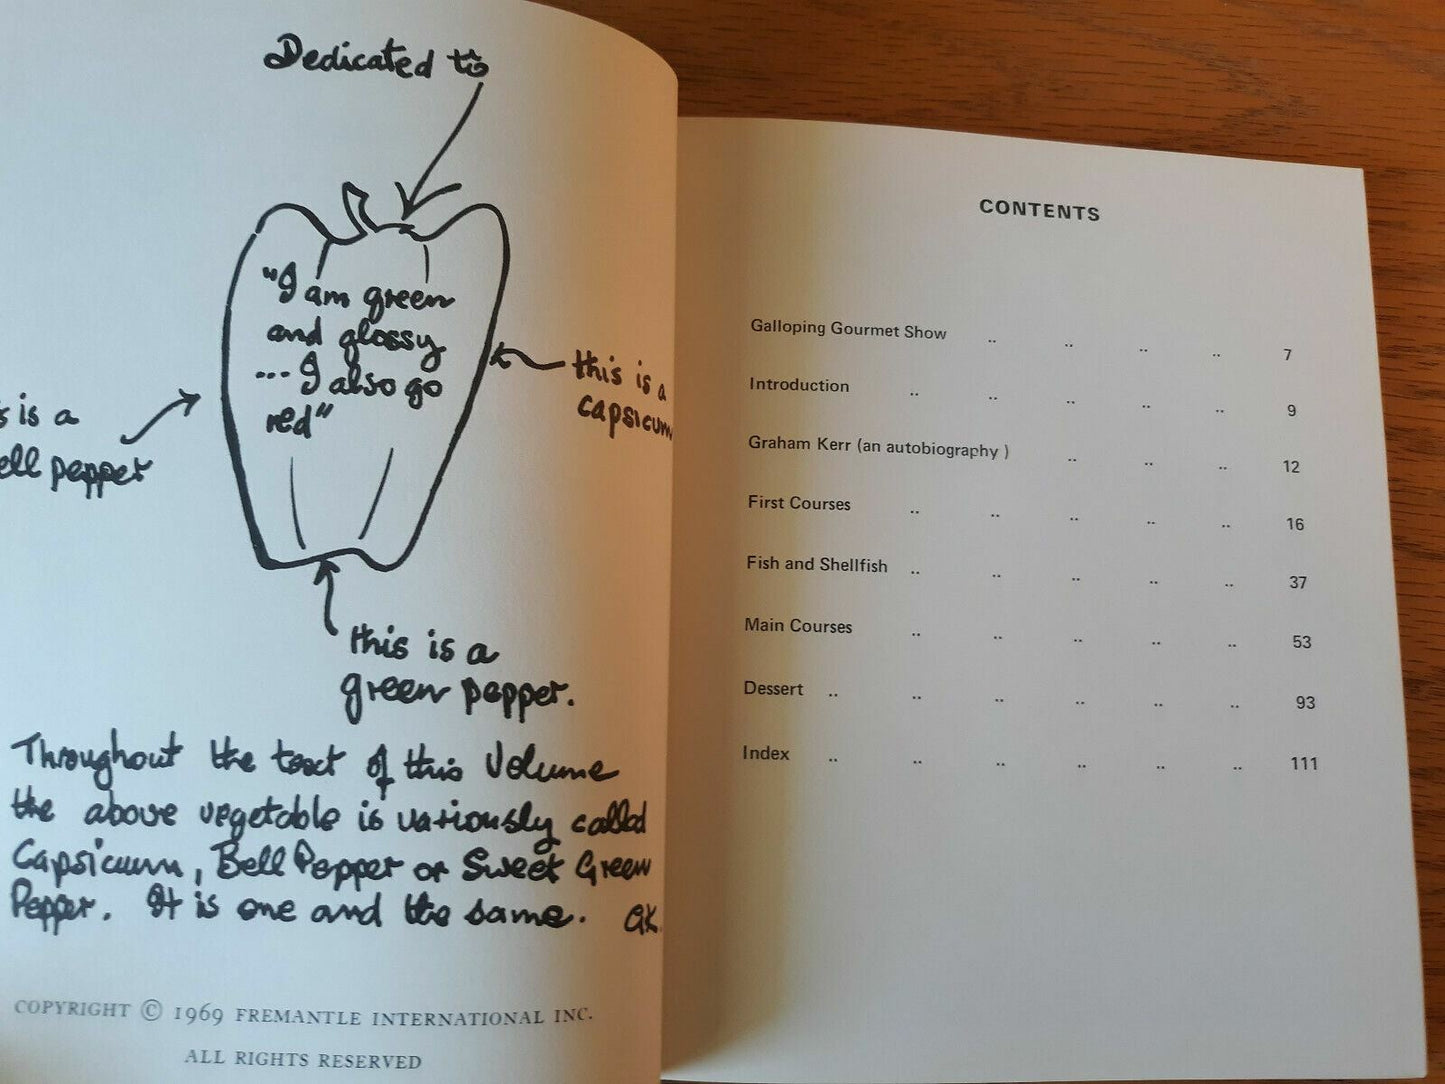 Dedicated to
"I am green
and glossy
... I also go
red"
this is a
capsicum
is a
pepper
this is a
green pepper.
Throughout the text of this Volume
the above vegetable is variously called
Capsicum, Bell Pepper or Sweet Green
Pepper. It is one and the same. GK.
COPYRIGHT © 1969 FREMANTLE INTERNATIONAL INC.
ALL RIGHTS RESERVED
CONTENTS
Galloping Gourmet Show .. .. .. .. 7
Introduction .. .. .. .. .. 9
Graham Kerr (an autobiography ) .. .. .. 12
First Courses .. .. .. .. .. 16
Fish and Shellfish .. .. .. .. .. 37
Main Courses .. .. .. .. .. 53
Dessert .. .. .. .. .. .. 93
Index .. .. .. .. .. .. 111